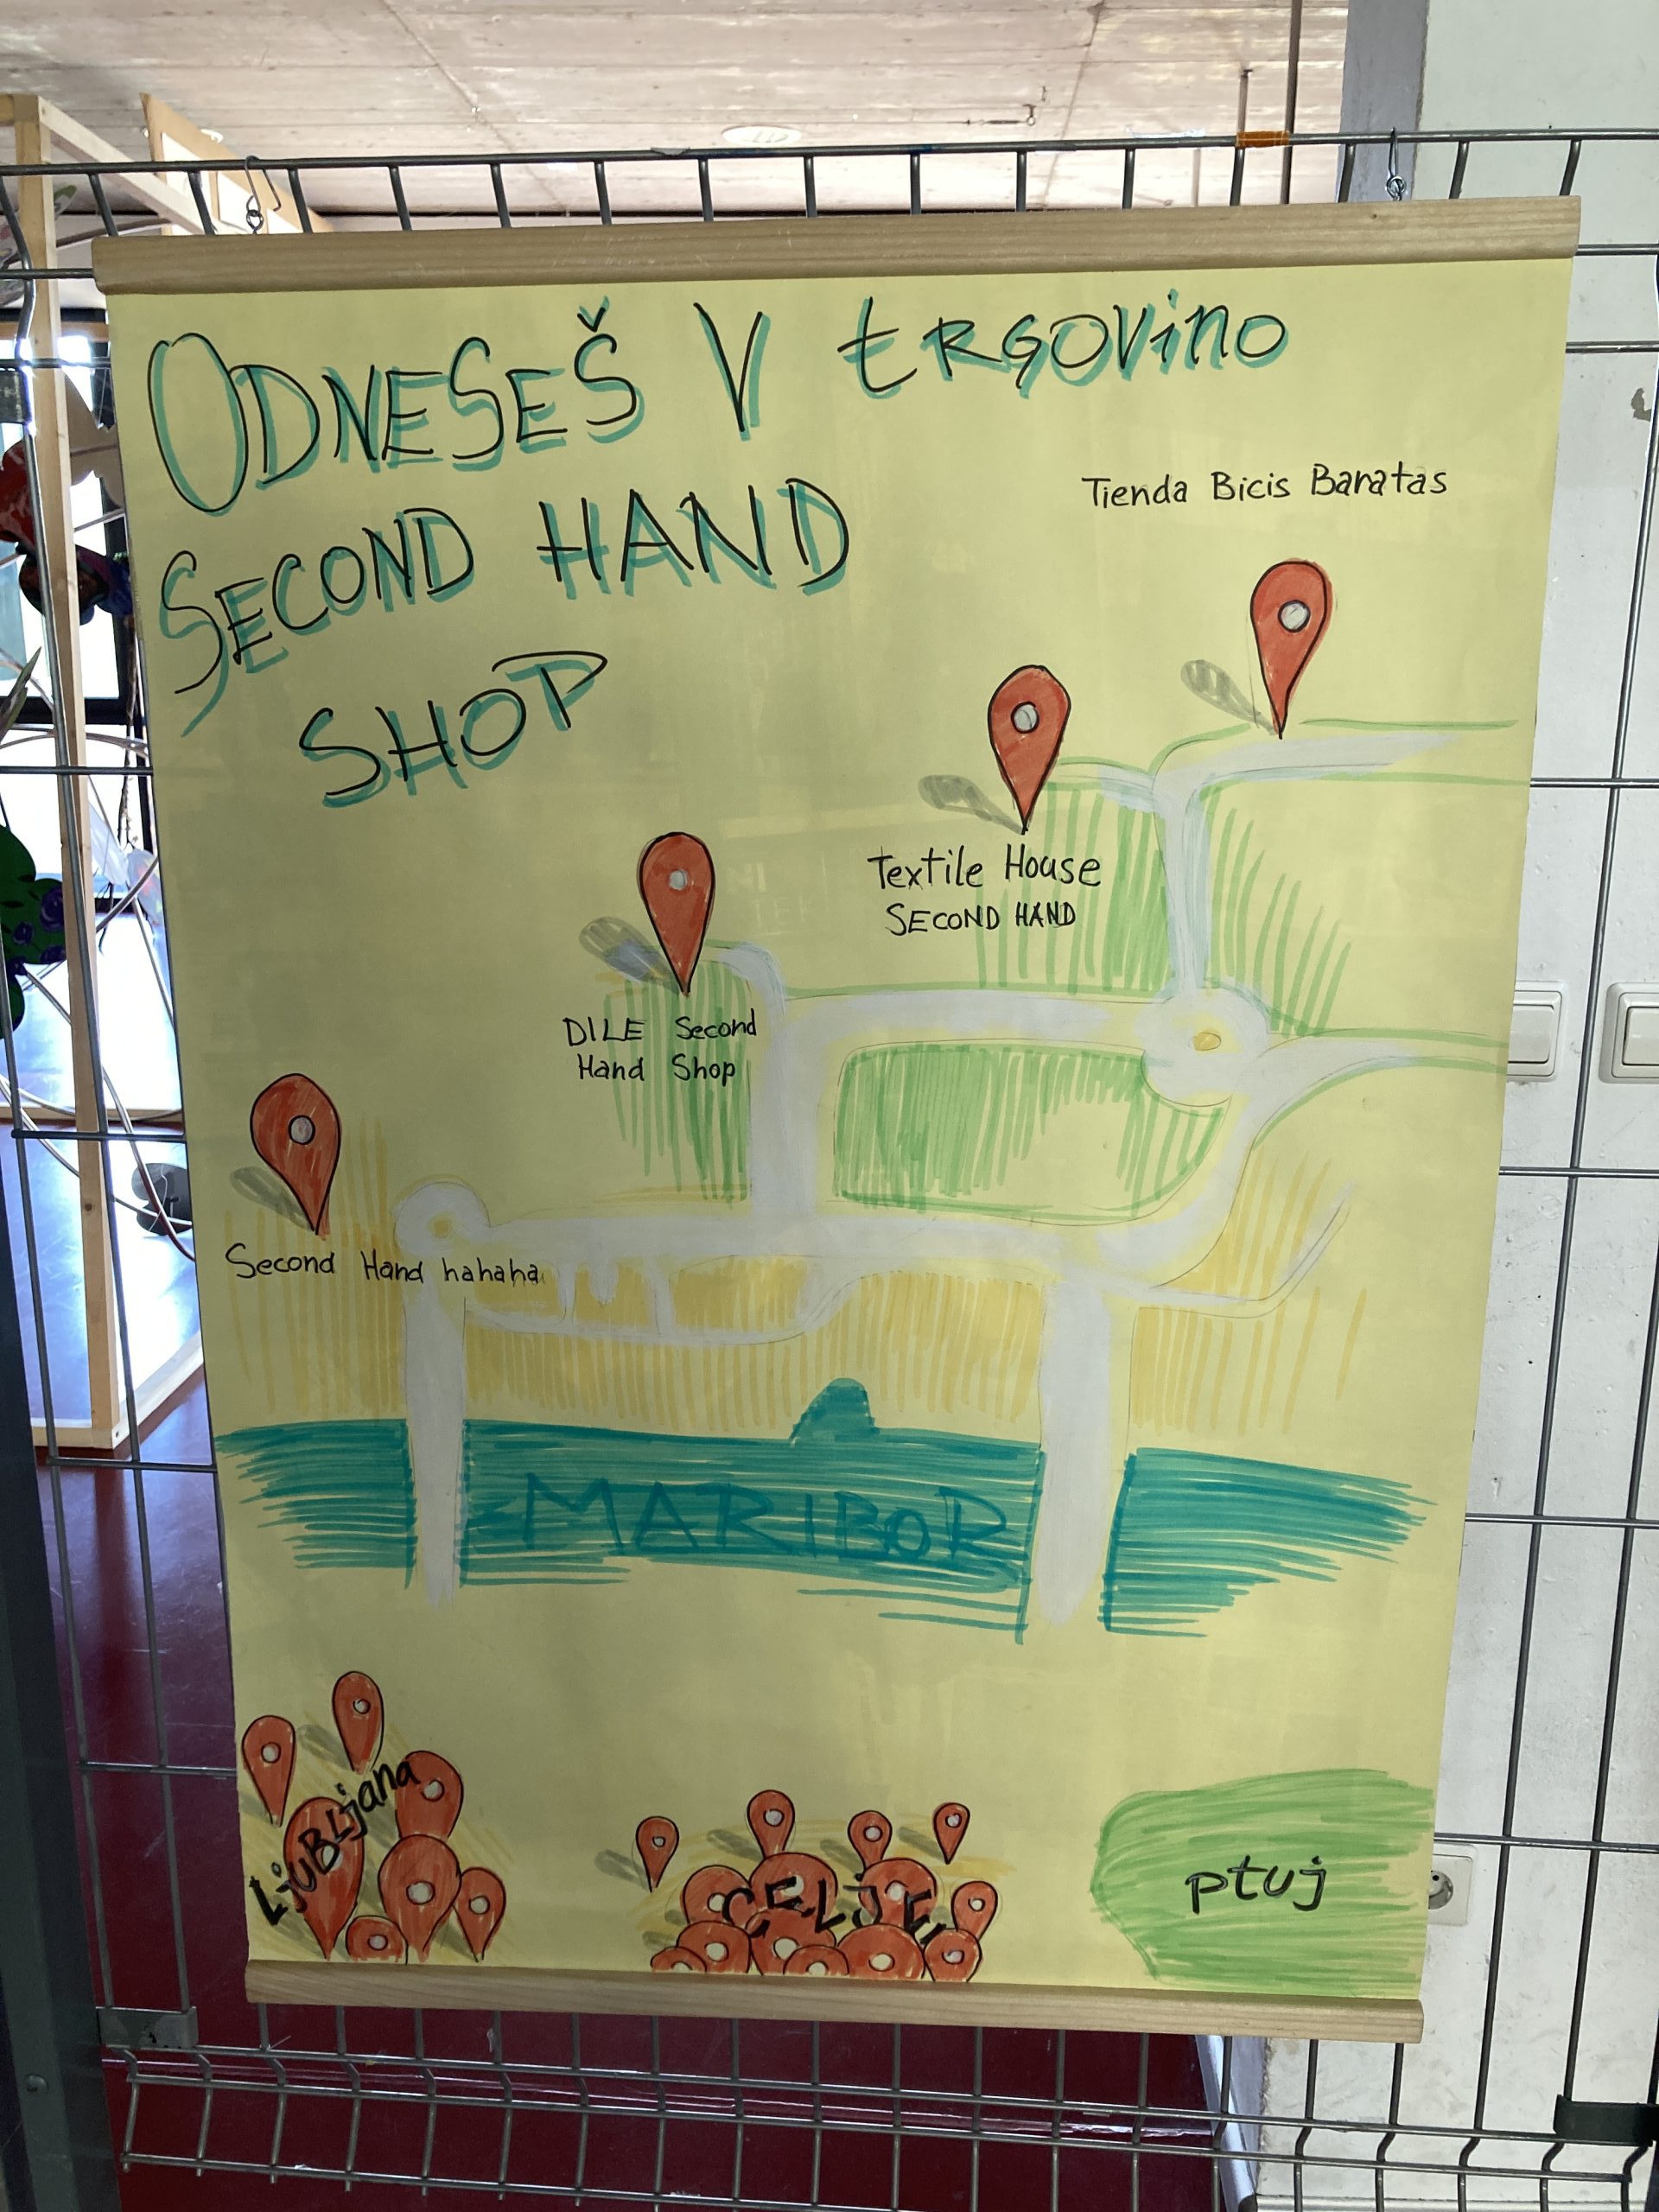 ODNESEŠ V tRGOVinO
SECOND HAND
SHOP
Tienda Bicis Baratas
Textile House
SECOND HAND
DILE Second
Hand Shop
Second Hand hahaha
MARIBOR
LjuBLjana
CELJE
ptuj